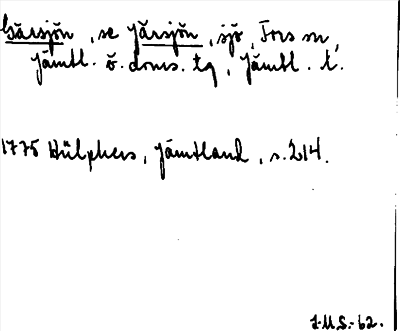 Gärsjön, se Järsjön, sjö, Fors sn,
Jämtl. ö. doms. tg, Jämtl. l.
1775 Hülphers, Jämtland, s. 214.
J.M.S.-62.